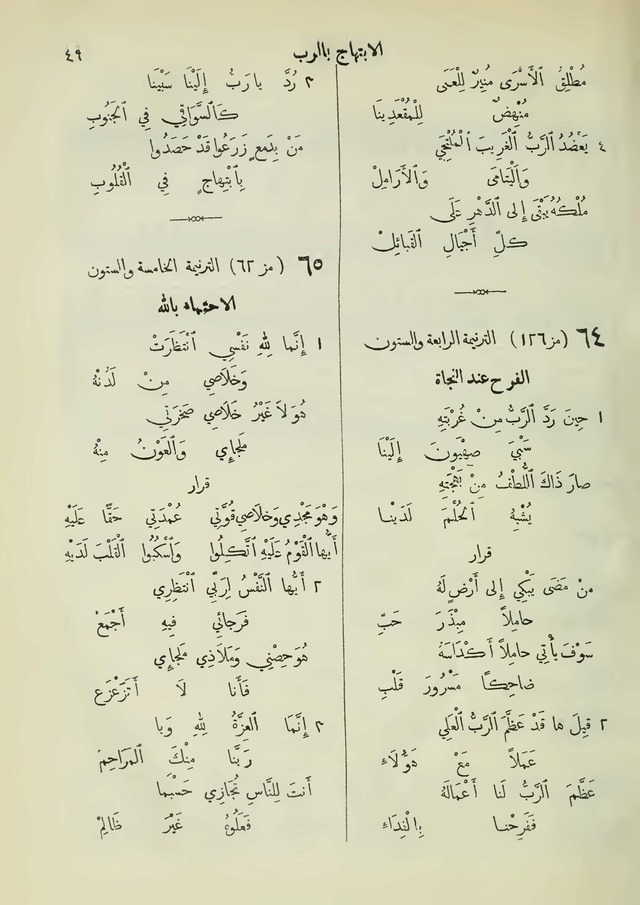 الابتهاج بالرب
٤٩
مُطْلِقُ ٱلْأَسْرَى مُنِيرٌ لِلْعَمَى
مُنْهِضٌ لِلْمُقْعَدِينَا
٤ يَعْضُدُ ٱلرَّبُّ ٱلْغَرِيبَ ٱلْمُلْتَجِي
وَٱلْيَتَامَى وَٱلْأَرَامِلْ
مُلْكُهُ يَبْقَى إِلَى ٱلدَّهْرِ عَلَى
كُلِّ أَجْيَالِ ٱلْقَبَائِلْ
٦٤ (مز ١٢٦) الترنيمة الرابعة والستون
الفرح عند النجاة
١ حِينَ رَدَّ ٱلرَّبُّ مِنْ غُرْبَتِهِ
سَبْيَ صِهْيَوْنَ إِلَيْنَا
صَارَ ذَاكَ ٱللُّطْفُ مِنْ بَهْجَتِهِ
يُشْبِهُ ٱلْحُلْمَ لَدَيْنَا
قرار
مَنْ مَضَى يَبْكِي إِلَى أَرْضٍ لَهُ
حَامِلاً مِبْذَرَ حَبِّ
سَوْفَ يَأْتِي حَامِلاً أَكْدَاسَهُ
ضَاحِكًا مَسْرُورَ قَلْبِ
٢ قِيلَ هَا قَدْ عَظَّمَ ٱلرَّبُّ ٱلْعَلِي
عَمَلاً مَعْ هٰؤُلَاءِ
عَظَّمَ ٱلرَّبُّ لَنَا أَعْمَالَهُ
فَفَرِحْنَا بِٱلْفِدَاءِ
٣ رُدَّ يَا رَبُّ إِلَيْنَا سَبْيَنَا
كَٱلسَّوَاقِي فِي ٱلْجَنُوبِ
مَنْ بِدَمْعٍ زَرَعُوا قَدْ حَصَدُوا
بِٱبْتِهَاجٍ فِي ٱلْقُلُوبِ
٦٥ (مز ٦٢) الترنيمة الخامسة والستون
الاحتماء بالله
١ إِنَّمَا لِلهِ نَفْسِي ٱنْتَظَرَتْ
وَخَلَاصِي مِنْ لَدُنْهُ
هُوَ لَا غَيْرُ خَلَاصِي صَخْرَتِي
مَلْجَإِي وَٱلْعَوْنُ مِنْهُ
قرار
وَهْوَ مَجْدِي وَخَلَاصِي قُوَّتِي عُمْدَتِي حَقًّا عَلَيْهِ
أَيُّهَا ٱلْقَوْمُ عَلَيْهِ ٱتَّكِلُوا وَٱسْكُبُوا ٱلْقَلْبَ لَدَيْهِ
٢ أَيُّهَا ٱلنَّفْسُ لِرَبِّي ٱنْتَظِرِي
فَرَجَائِي فِيهِ أَجْمَعْ
هُوَ حِصْنِي وَمَلَاذِي مَلْجَإِي
فَأَنَا لَا أَتَزَعْزَعْ
٣ إِنَّمَا ٱلْعِزَّةُ لِلهِ وَيَا
رَبَّنَا مِنْكَ ٱلْمَرَاحِمْ
أَنْتَ لِلنَّاسِ تُجَازِي حَسْبَمَا
فَعَلُوهُ غَيْرَ ظَالِمْ